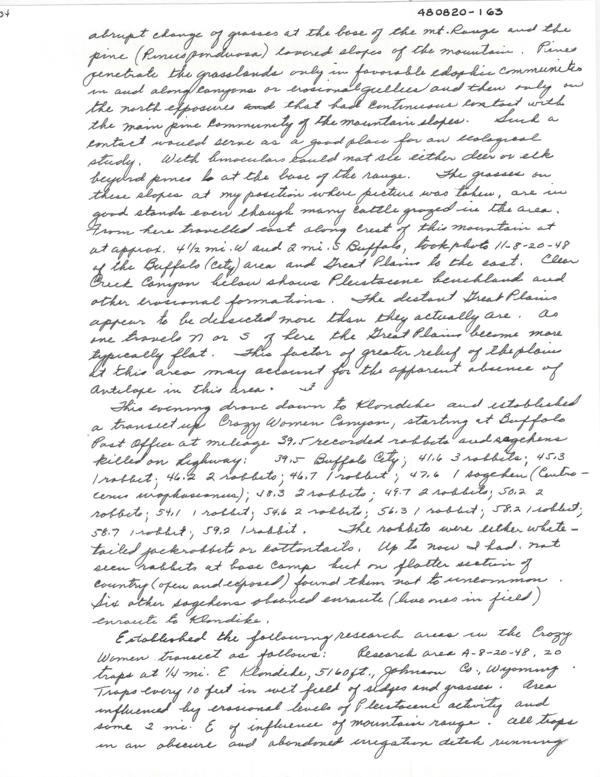 34
480820-163
abrupt change of grasses at the base of the mt. Range and the
pine (Pinus ponderosa) covered slopes of the mountain. Pines
penetrate the grasslands only in favorable edaphic communities
in and along canyons or erosional gullies and then only on
the north exposures and that had continuous contact with
the main pine community of the mountain slopes. Such a
contact would serve as a good place for an ecological
study. With binoculars could not see either deer or elk
beyond pines at the base of the range. The grasses on
these slopes at my position where picture was taken, are in
good stands even though many cattle grazed in the area.
From here travelled east along crest of this mountain at
at approx. 4½ mi. W and 2 mi. S Buffalo, took photo 11-8-20-48
of the Buffalo (City) area and Great Plains to the east. Clear
Creek Canyon below shows Pleistocene benchland and
other erosional formations. The distant Great Plains
appear to be dissicted more than they actually are. As
one travels N or S of here the Great Plains become more
typically flat. This factor of greater relief of the plains
at this area may account for the apparent absence of
Antilope in this area.
This evening drove down to Klondike and established
a transect up Crazy Women Canyon, starting at Buffalo
Post Office at mileage 39.5 recorded rabbits and sagehens
killed on highway: 39.5 Buffalo City; 41.6 3 rabbits; 45.3
1 rabbit; 46.2 2 rabbits; 46.7 1 rabbit; 47.6 1 sagehen (Centro-
cercus urophasianus); 48.3 2 rabbits; 49.7 2 rabbits; 50.2 2
rabbits; 54.1 1 rabbit; 54.6 2 rabbits; 56.3 1 rabbit; 58.2 1 rabbit;
58.7 1 rabbit; 59.2 1 rabbit. The rabbits were either white-
tailed jackrabbits or cottontails. Up to now I had not
seen rabbits at base camp but on flatter section of
country (open and exposed) found them not to uncommon.
Six other sagehens observed enroute (live ones in field)
enroute to Klondike.
Established the following research areas in the Crazy
Women transect as follows: Research area A-8-20-48, 20
traps at ¼ mi. E Klondike, 5160 ft., Johnson Co., Wyoming.
Traps every 10 feet in wet field of sedges and grasses. Area
influenced by erosional levels of Pleistocene activity and
some 2 mi. E of influence of mountain range. All traps
in an obscure and abandoned irrigation ditch running